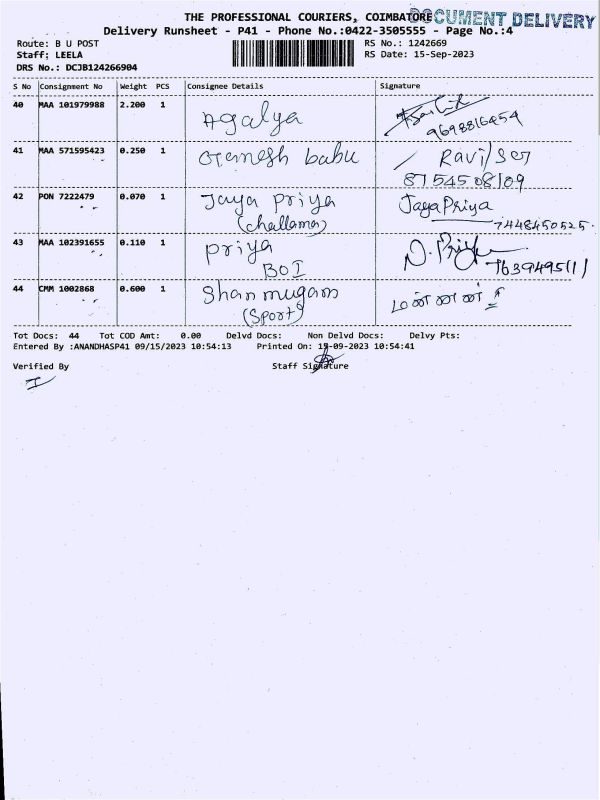 THE PROFESSIONAL COURIERS, COIMBATORE
DOCUMENT DELIVERY
Delivery Runsheet - P41 - Phone No.:0422-3505555 - Page No.:4
Route: B U POST
RS No.: 1242669
Staff: LEELA
RS Date: 15-Sep-2023
DRS No.: DCJB124266904
S No Consignment No Weight PCS Consignee Details Signature
40 MAA 101979988 2.200 1 Agalya
9698816454
41 MAA 571595423 0.250 1 babu Ravi/Ser
8754508109
42 PON 7222479 0.070 1 Jaya Priya JayaPriya
(challama) 7448450525
43 MAA 102391655 0.110 1 priya D. Priya
BOI 7639495111
44 CMM 1002868 0.600 1 Shanmugam
(Sport)
Tot Docs: 44 Tot COD Amt: 0.00 Delvd Docs: Non Delvd Docs: Delvy Pts:
Entered By :ANANDHASP41 09/15/2023 10:54:13 Printed On: 15-09-2023 10:54:41
Verified By Staff Signature